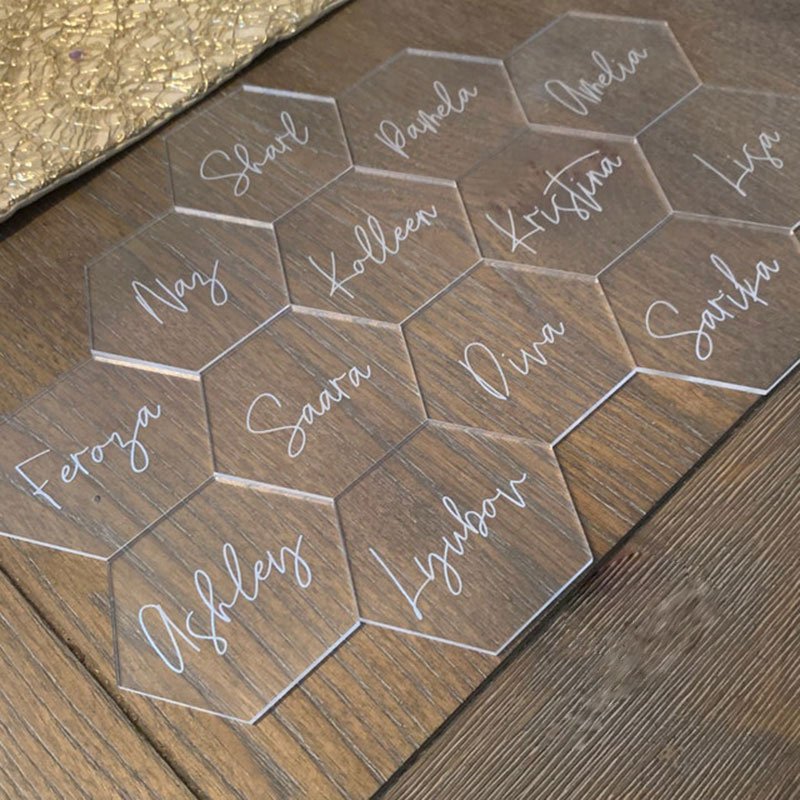 Sharl
Pamela
Amelia
Naz
Kolleen
Kristina
Lisa
Feroza
Saara
Diva
Sarika
Ashley
Lyubov